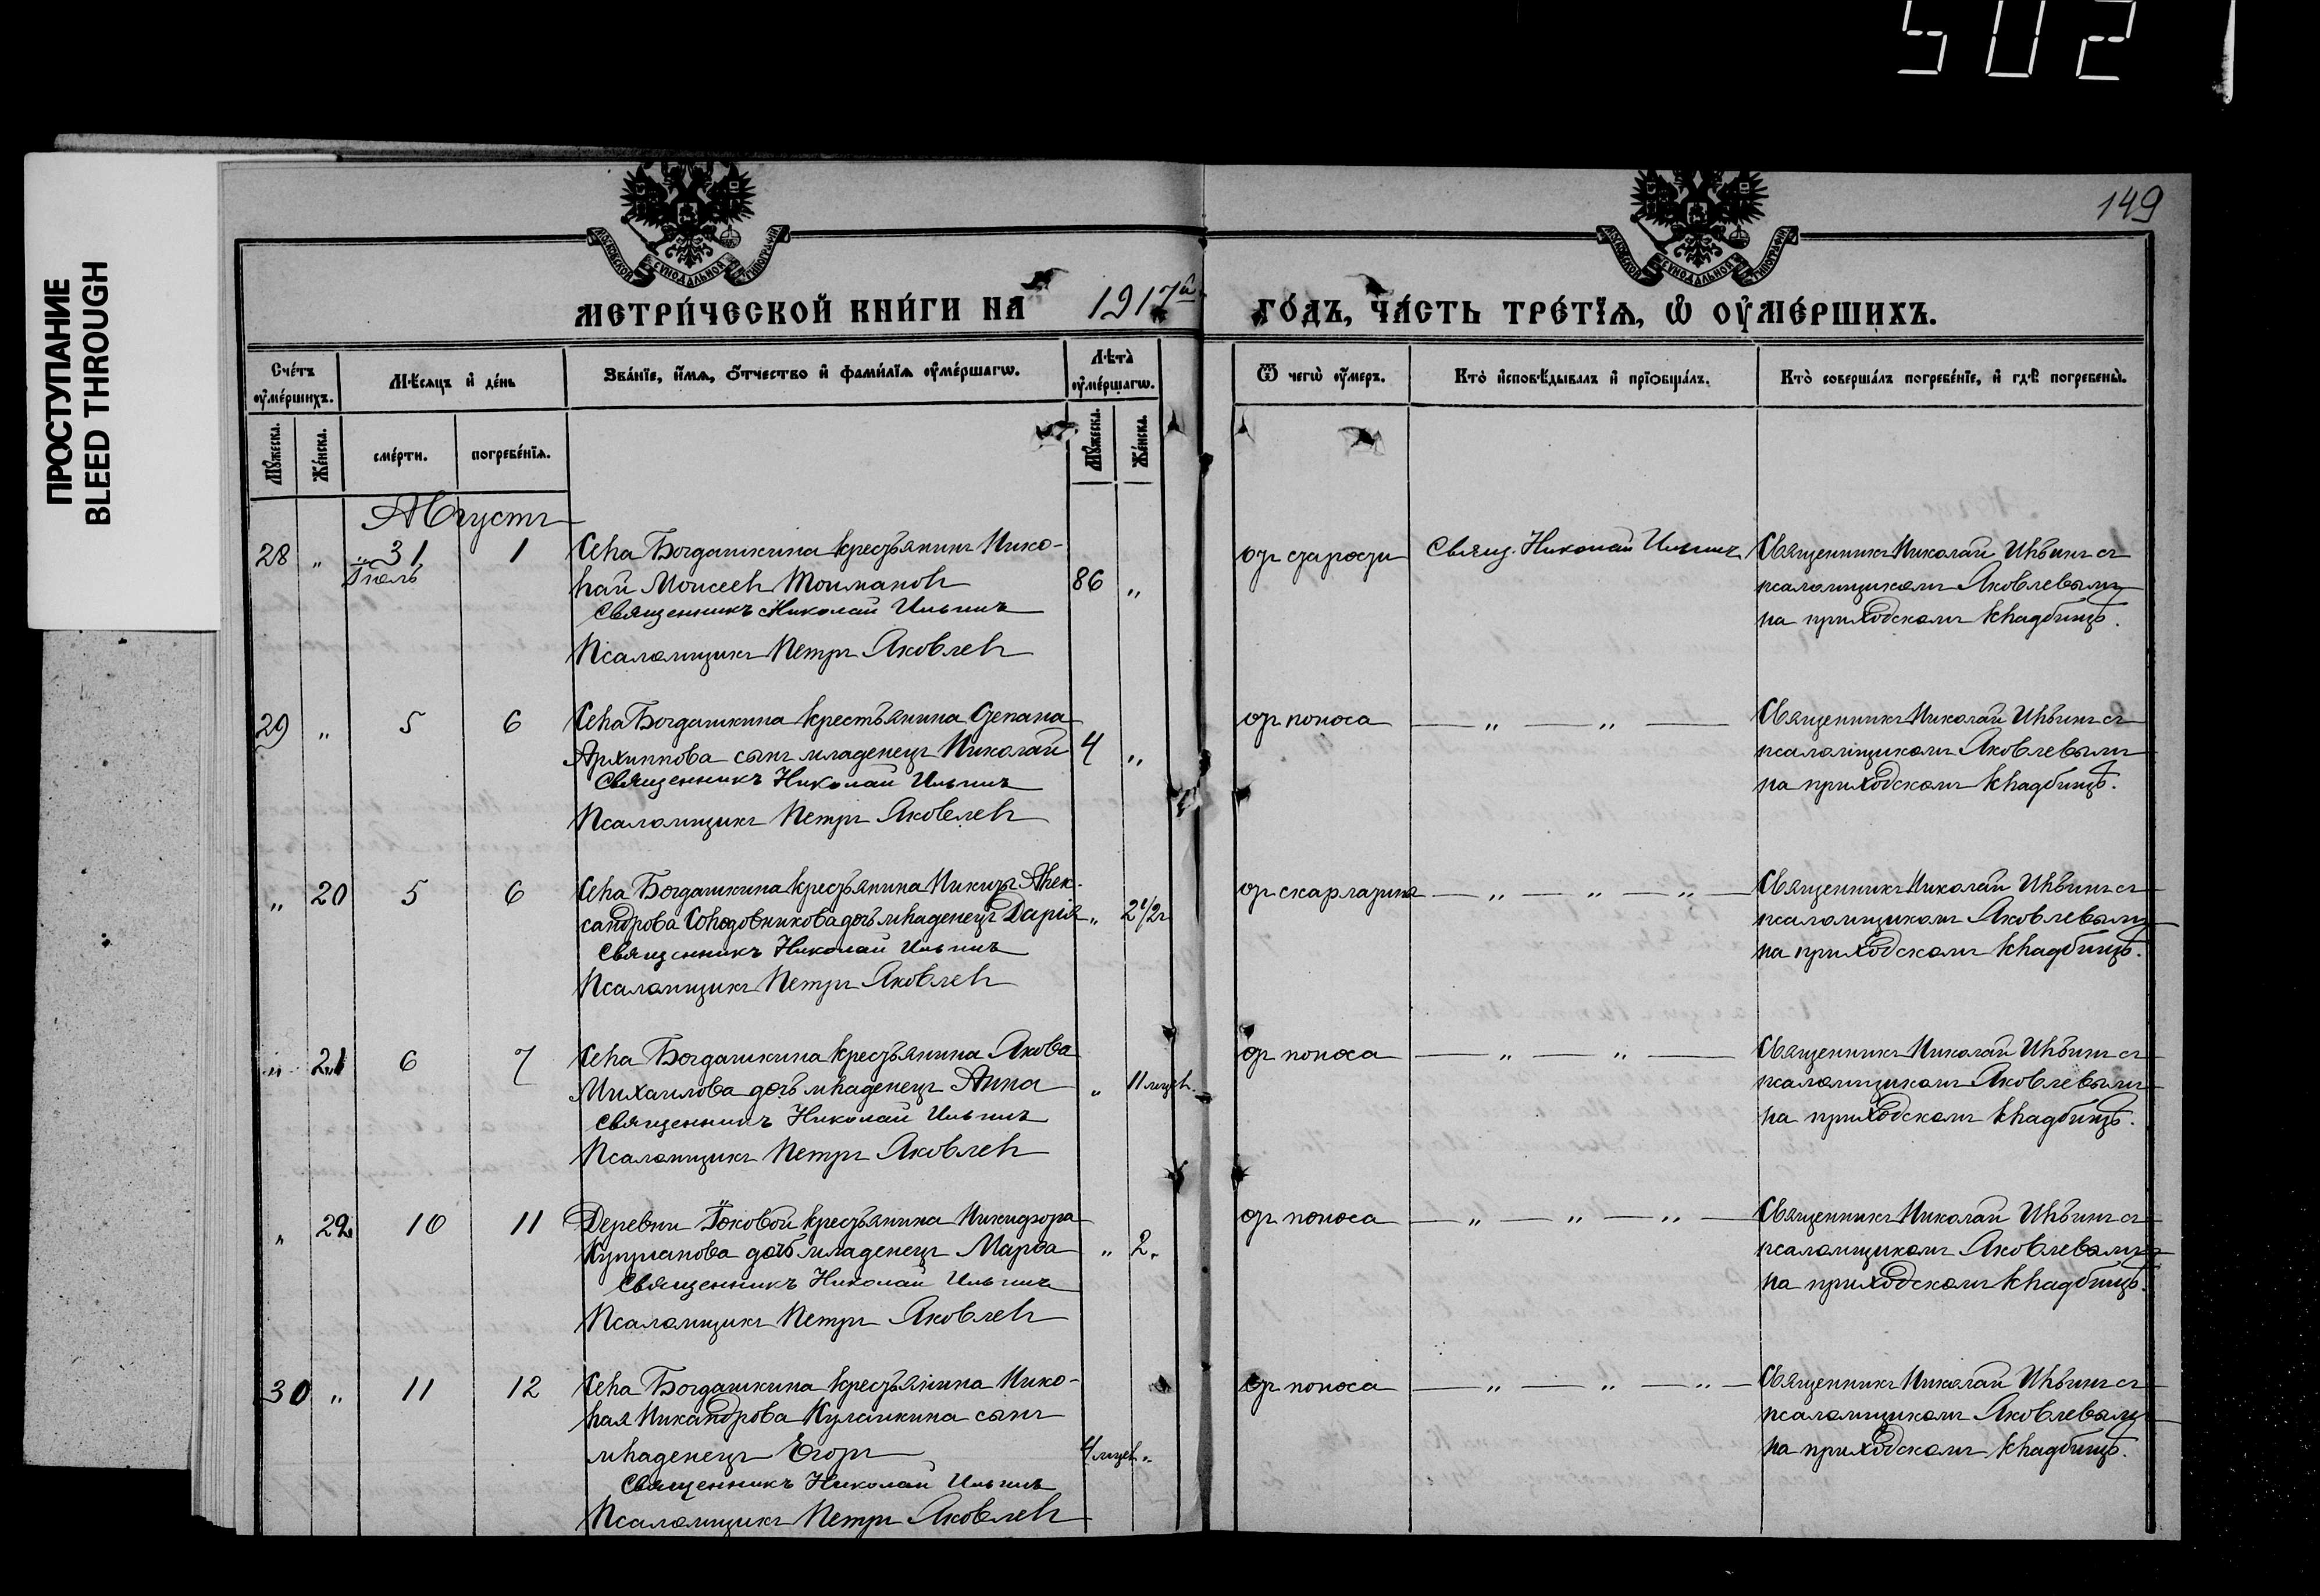 5021
ПРОСТУПАНИЕ
BLEED THROUGH
149
МОСКОВСКОЙ СУНОДАЛЬНОЙ ТИПОГРАФІИ
МОСКОВСКОЙ СУНОДАЛЬНОЙ ТИПОГРАФІИ
МЕТРИ́ЧЕСКОЙ КНИ́ГИ НА 1917й ГО́ДЪ, ЧА́СТЬ ТРЕ́ТЇѦ, Ѡ ОУМЕ́РШИХЪ.
Сче́тъ оумершихъ.
Мѣсяцъ и де́нь
Зва́нїе, и́мѧ, о́тчество и фами́лїѧ оуме́ршагѡ.
Лѣта̀ оуме́ршагѡ.
Ѿ чегѡ̀ оумеръ.
Кто̀ исповѣ́дывалъ и прїѡбща́лъ.
Кто̀ соверша́лъ погребе́нїе, и гдѣ̀ погребены̀.
Мужеска.
Же́нска.
сме́рти.
погребе́нїѧ.
Мужеска.
Же́нска.
Августъ
28 " 31 1 Села Богдашкина крестьянинъ Нико-
Іюль
лай Моисеев Тоиманов 86 "
Священникъ Николай Ильинъ
Псаломщикъ Петръ Яковлев
от старости
Свящ. Николай Ильинъ
Священникъ Николай Ильинъ съ
псаломщикомъ Яковлевымъ
на приходскомъ кладбищѣ.
29 " 5 6 Села Богдашкина крестьянина Степана
Архиппова сынъ младенецъ Николай 4 "
Священникъ Николай Ильинъ
Псаломщикъ Петръ Яковлев
от поноса — " — " —
Священникъ Николай Ильинъ съ
псаломщикомъ Яковлевымъ
на приходскомъ кладбищѣ.
" 20 5 6 Села Богдашкина крестьянина Никиты Алек-
сандрова Солодовникова дочь младенецъ Дарія " 2 1/2 г
Священникъ Николай Ильинъ
Псаломщикъ Петръ Яковлев
от скарлатины — " — " — " —
Священникъ Николай Ильинъ съ
псаломщикомъ Яковлевымъ
на приходскомъ кладбищѣ.
" 21 6 7 Села Богдашкина крестьянина Якова
Михаилова дочь младенецъ Анна " 11 мцев.
Священникъ Николай Ильинъ
Псаломщикъ Петръ Яковлев
от поноса — " — " —
Священникъ Николай Ильинъ съ
псаломщикомъ Яковлевымъ
на приходскомъ кладбищѣ.
" 22 10 11 Деревни крестьянина Никифора
дочь младенецъ Марѳа " 2.
Священникъ Николай Ильинъ
Псаломщикъ Петръ Яковлев
от поноса — " — " — " —
Священникъ Николай Ильинъ съ
псаломщикомъ Яковлевымъ
на приходскомъ кладбищѣ.
30 " 11 12 Села Богдашкина крестьянина Нико-
лая Никандрова сынъ
младенецъ Егоръ 4 мцев. "
Священникъ Николай Ильинъ
Псаломщикъ Петръ Яковлев
от поноса — " — " — " —
Священникъ Николай Ильинъ съ
псаломщикомъ Яковлевымъ
на приходскомъ кладбищѣ.